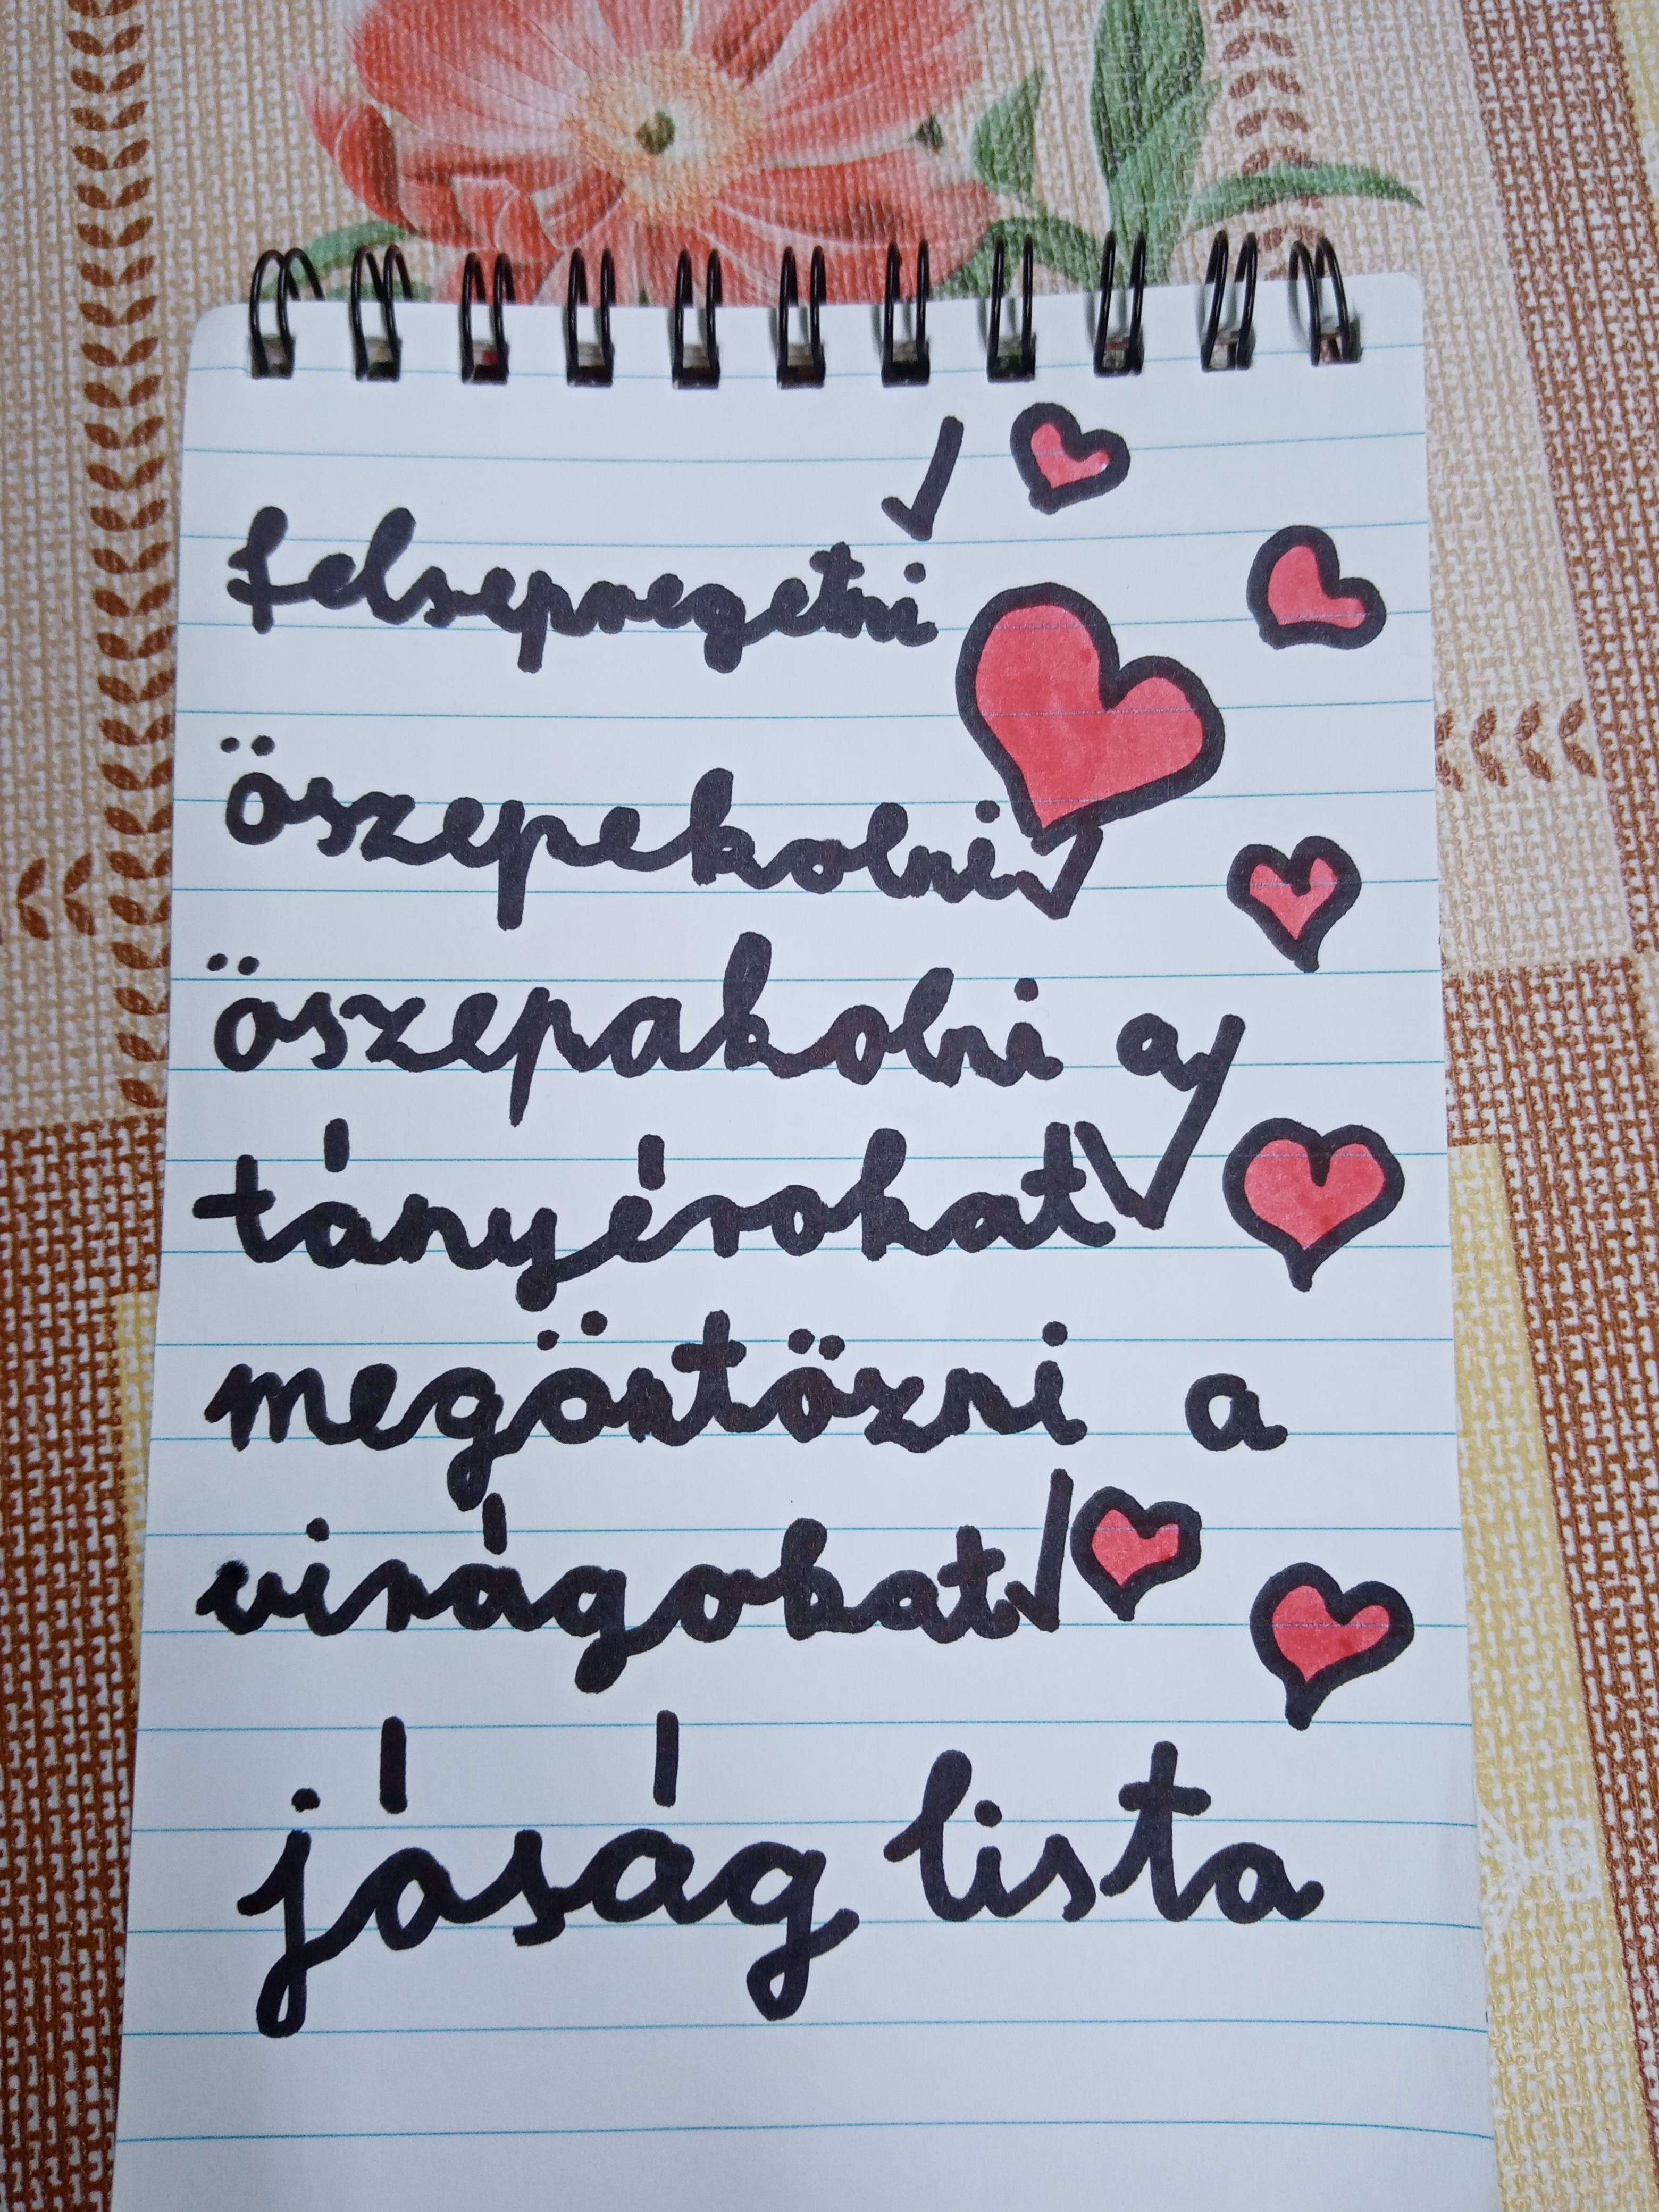 felsepregetni
öszepekolni
öszepakolni a
tányérokat
megöntözni a
virágokat
jóság lista